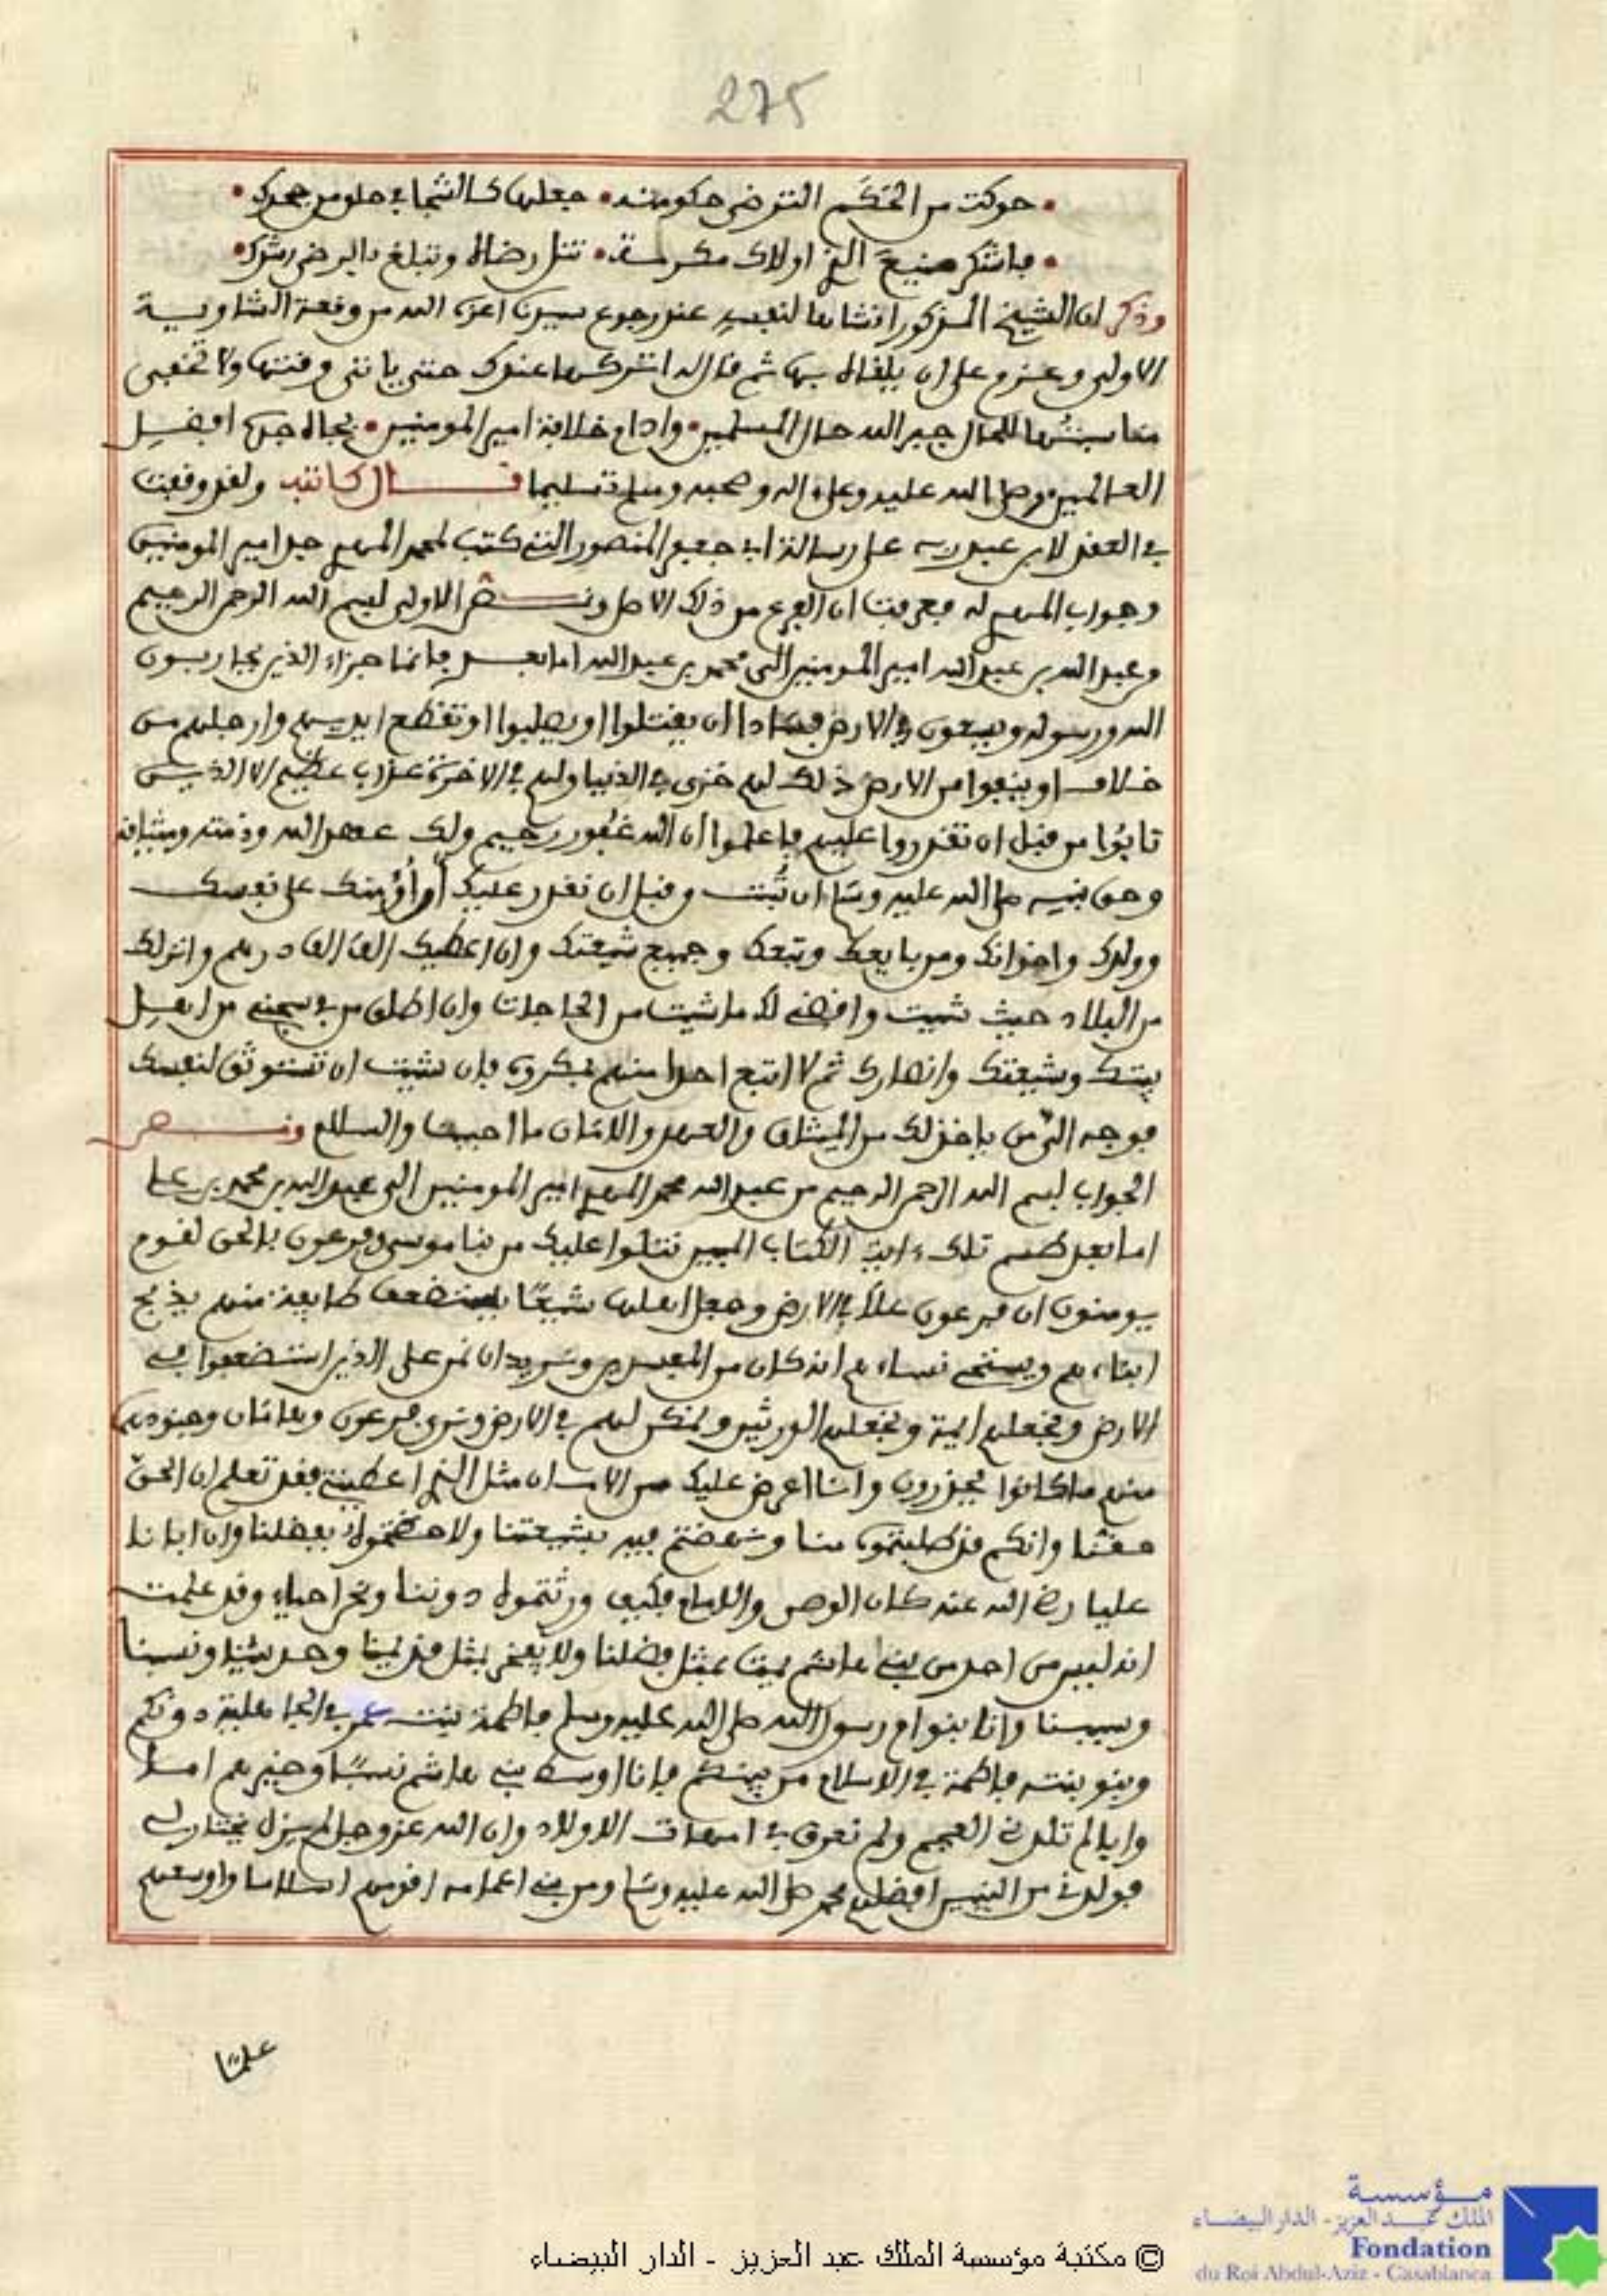 275
حوكت من الحكم التي ترضى حكومته • جعلها كالشجا في حلو من جحدك •
فاشكر صنيع الذي اولاك مكرمة • تنل رضاه وتبلغ بالرضى رشدك •
وذكر ان الشيخ المذكور انشاها لنفسه عند رجوع سيدنا اعزه الله من وقعة الشاوية
الاولى وعزم على ان يلقاه بها ثم قال له اتركها عندك حتى ياتي وقتها ولا تخفى
مناسبتها للحال جبر الله حال المسلمين • وادام خلافة امير المومنين • بجاه جده افضل
العالمين وصلى الله عليه وعلى اله وصحبه وسلم تسليما قال كاتبه ولقد وقفت
في العقد لابن عبد ربه على رسالة ابي جعفر المنصور التي كتب لمحمد المهدي جد امير المومنين
وجواب المهدي له فعرفت ان الفرع من ذلك الاصل ونص الاولى بسم الله الرحمن الرحيم
من عبد الله بن عبد الله امير المومنين الى محمد بن عبد الله اما بعد فانما جزاء الذين يحاربون
الله ورسوله ويسعون في الارض فسادا ان يقتلوا او يصلبوا او تقطع ايديهم وارجلهم من
خلاف او ينفوا من الارض ذلك لهم خزي في الدنيا ولهم في الاخرة عذاب عظيم الا الذين
تابوا من قبل ان تقدروا عليهم فاعلموا ان الله غفور رحيم ولك عهد الله وذمته وميثاقه
وحق نبيه صلى الله عليه وسلم ان تبت من قبل ان نقدر عليك ان اؤمنك على نفسك
وولدك واخوانك ومن بايعك وتبعك وجميع شيعتك وان اعطيك الف الف درهم وانزلك
من البلاد حيث شيت واقضي لك ما شيت من الحاجات وان اطلق من في سجني من اهل
بيتك وشيعتك وانصارك ثم لا اتبع احدا منهم بمكروه فان شيت ان تستوثق لنفسك
فوجه الي من ياخذ لك من الميثاق والعهد والامان ما احببت والسلام ونص
الجواب بسم الله الرحمن الرحيم من عبد الله محمد المهدي امير المومنين الى عبد الله بن محمد بن علي
اما بعد طسم تلك ءايت الكتاب المبين نتلوا عليك من نبا موسى وفرعون بالحق لقوم
يومنون ان فرعون علا في الارض وجعل اهلها شيعا يستضعف طايفة منهم يذبح
ابناءهم ويستحي نساءهم انه كان من المفسدين ونريد ان نمن على الذين استضعفوا في
الارض ونجعلهم ايمة ونجعلهم الورثين ونمكن لهم في الارض ونري فرعون وهامان وجنودهما
منهم ما كانوا يحذرون وانا اعرض عليك من الامان مثل الذي اعطيتني فقد تعلم ان الحق
حقنا وانكم قد طلبتموه بنا ونهضتم فيه بشيعتنا ولا حظتموه بفضلنا وان ابانا
عليا رضي الله عنه كان الوصي والامام فكيف ورثتموه دوننا ونحن احياء وقد علمت
انه ليس من احد من بني هاشم يمت بمثل فضلنا ولا يفخر بمثل قديمنا وحديثنا ونسبنا
وسببنا وانا بنو ام رسول الله صلى الله عليه وسلم فاطمة بنت عمر في الجاهلية دونكم
وبنو بنته فاطمة في الاسلام من بينكم فانا اوسط بني هاشم نسبا وخيرهم اما
وابا لم تلدني العجم ولم تعرق في امهات الاولاد وان الله عز وجل لم يزل يختار لي
فولدني من النبيين افضلهم محمد صلى الله عليه وسلم ومن بني اعمامه اقدمهم اسلاما واوسعهم
علما
مؤسسة
الملك عبد العزيز - الدار البيضاء
Fondation
du Roi Abdul-Aziz - Casablanca
© مكتبة مؤسسة الملك عبد العزيز - الدار البيضاء